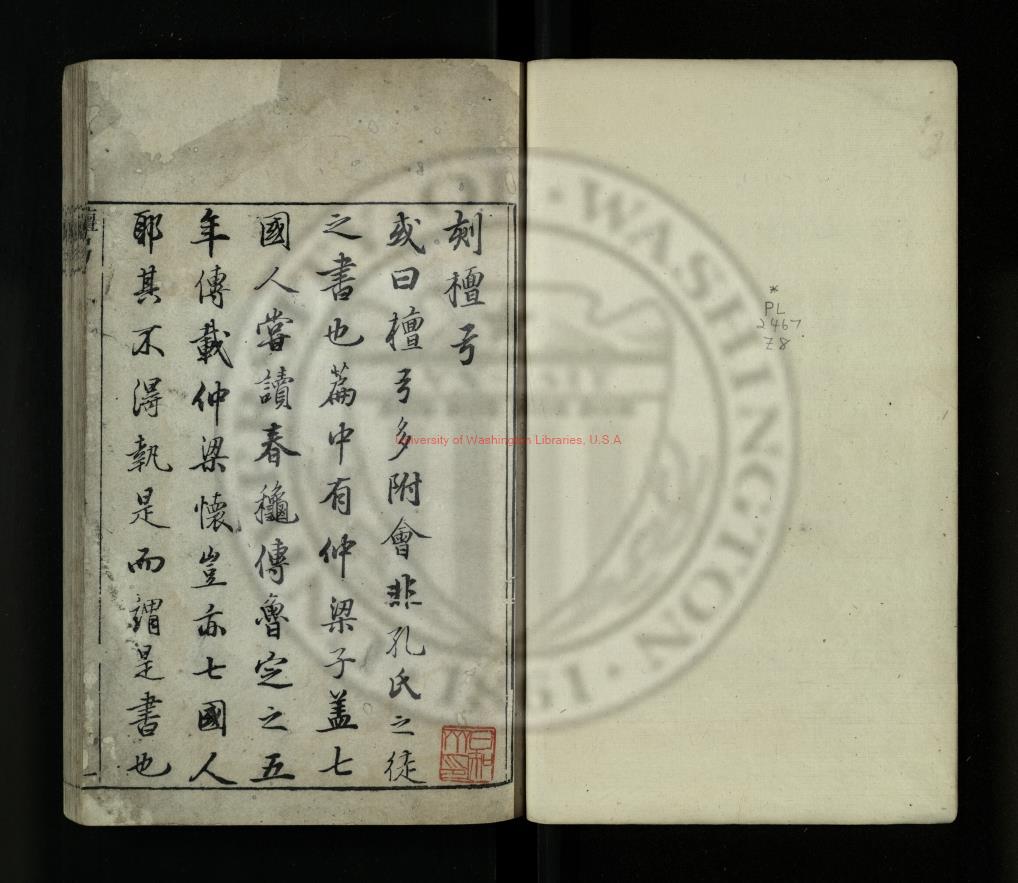 刻檀弓
或曰檀弓多附會非孔氏之徒
之書也篇中有仲梁子盖七
國人嘗讀春穐傳魯定之五
年傳載仲梁懷豈亦七國人
耶其不得執是而謂是書也
檀弓
一
*
PL
2467
Z8
University of Washington Libraries, U.S.A
WASHINGTON